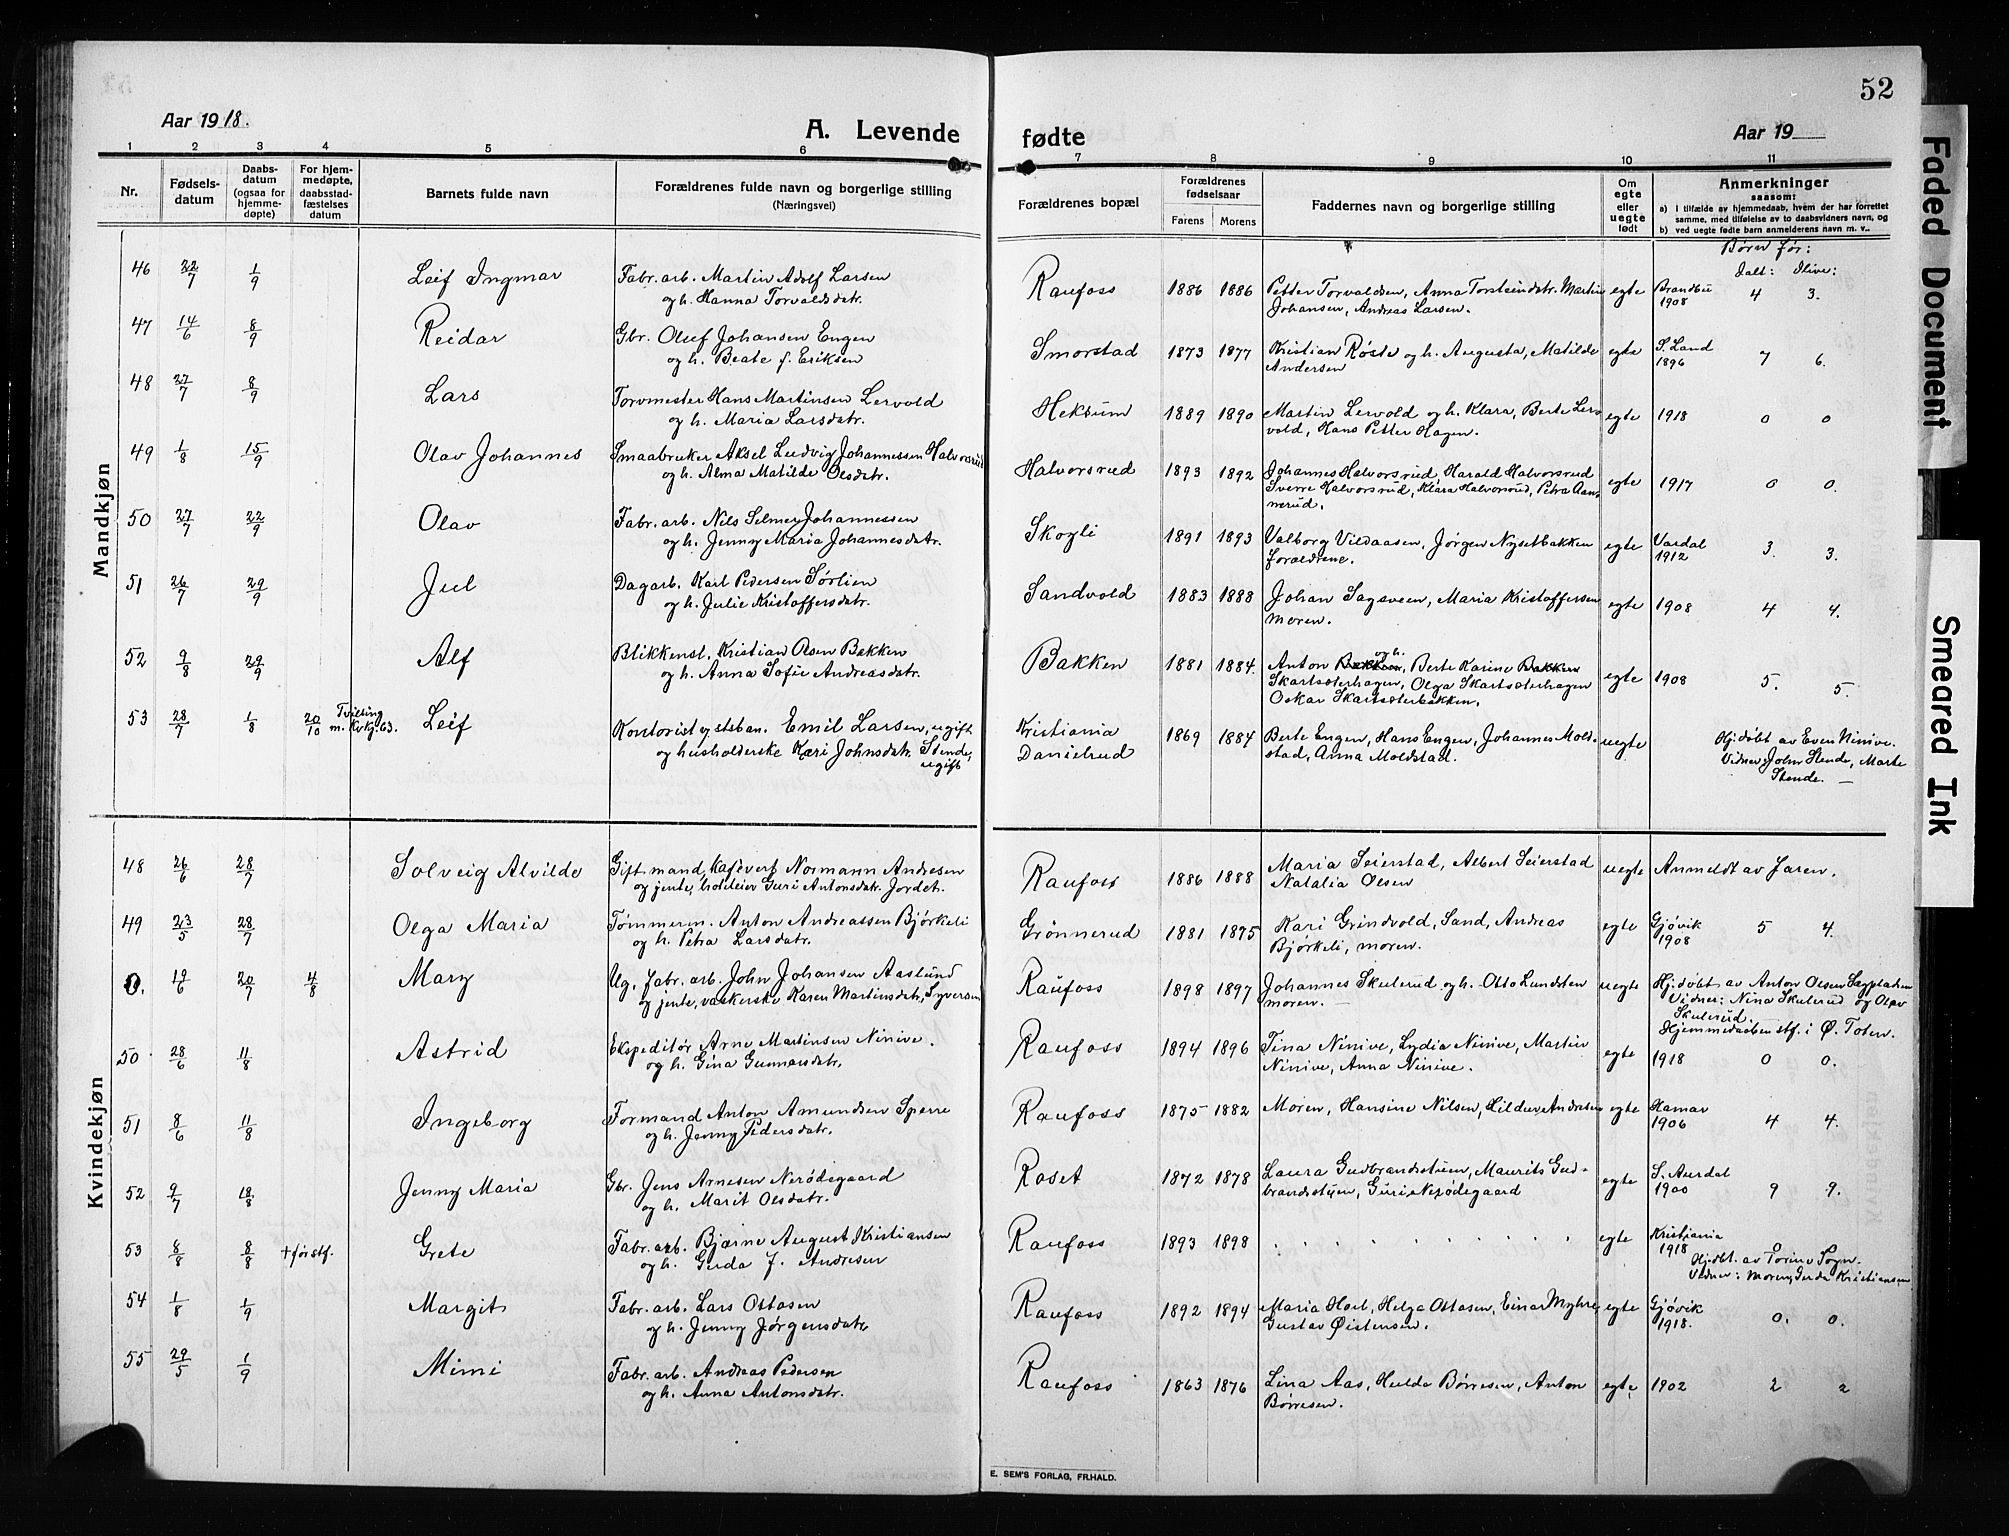 52
Aar 1918.
A. Levende fødte
Aar 19
1 2 3 4 5 6 7 8 9 10 11
Nr.
Fødsels-
datum
Daabs-
datum
(ogsaa for
hjemme-
døpte)
For hjem-
medøpte,
daabsstad-
fæstelses
datum
Barnets fulde navn
Forældrenes fulde navn og borgerlige stilling
(Næringsvei)
Forældrenes bopæl
Forældrenes
fødselsaar
Farens Morens
Faddernes navn og borgerlige stilling
Om
egte
eller
uegte
født
Anmerkninger
saasom:
a) I tilfælde av hjemmedaab, hvem der har forrettet
samme, med tilføielse av to daabsvidners navn, og
b) ved uegte fødte barn anmelderens navn m. v..
Børn før:
Ialt: Ilive:
Mandkjøn
46 22/7 1/9 Leif Ingmar Fabr. arb. Martin Adolf Larsen Raufoss 1886 1886 Petter Torvaldsen, Anna Torsteindstr. Martin egte Brandbu 4 3.
og h. Hanna Torvaldsdtr. Johansen, Andreas Larsen. 1908
47 14/6 8/9 Reidar Gbr. Oluf Johansen Engen Smorstad 1873 1877 Kristian Røste og h. Augusta, Matilde egte S. Land 7 6.
og h. Beate f. Eriksen Andersen 1896
48 27/7 8/9 Lars Torvmester Hans Martinsen Lervold Heksum 1889 1890 Martin Lervold og h. Klara, Berte Ler- egte 1918 0 0
og h. Maria Larsdatr. vold, Hans Petter Hagen.
49 1/8 15/9 Olav Johannes Smaabruker Aksel Ludvig Johannessen Halvorsrud Halvorsrud 1893 1892 Johannes Halvorsrud, Harald Halvorsrud egte 1917 0 0.
og h. Alma Matilde Olsdatr. Sverre Halvorsrud, Klara Halvorsrud, Petra Aas-
merud.
50 27/7 22/9 Olav Fabr. arb. Nils Selmer Johannessen Skogli 1891 1893 Valborg Vildaasen, Jørgen Nysetbakken egte Vardal 3. 3.
og h. Jenny Maria Johannesdatr. forældrene. 1912
51 26/7 29/9 Jul Dagarb. Karl Pedersen Sørlien Sandvold 1883 1888 Johan Sagsveen, Maria Kristoffersen egte 1908 4 4.
og h. Julie Kristoffersdatr. moren.
52 9/8 29/9 Alf Blikkensl. Kristian Olsen Bakken Bakken 1881 1884. Anton Bakken og h., Berte Karine Bakken egte 1908 5. 5
og h. Anna Sofie Andreasdatr. Skartsæterhagen, Olga Skartsæterhagen
Oskar Skartsæterbakken.
53 28/7 1/8 20/10 Tvilling m. Kvkj. 63. Leif Kontorist v/ stsban. Emil Larsen, ugift Kristiania 1869 1884 Berte Engen, Hans Engen, Johannes Mold- uegte Hj.døbt av Even Ninive.
og husholderske Kari Johnsdatr. Stende, ugift Danielrud stad, Anna Moldstad. Vidner: John Stende, Marte
Stende. —
Kvindekjøn
48 26/6 28/7 Solveig Alvilde Gift mand, kafévert Normann Andresen Raufoss 1886 1888 Maria Seierstad, Albert Seierstad uegte Anmeldt av Faren.
og jente, hoteleier Guri Antonsdatr. Jordet. Natalia Olsen
49 23/5 28/7 Olga Maria Tømmerm. Anton Andreassen Bjørkeli Grønnerud 1881 1875 Kari Grindvold, Sand, Andreas egte Gjøvik 5 4.
og h. Petra Larsdatr. Bjørkeli, moren. 1908
0. 19/6 20/7 4/8 Mary Ug. fabr. arb. John Johansen Aaslund Raufoss 1898 1897 Johannes Skulerud og h. Otto Lundsten uegte Hj.døbt av Anton Olsen Sagpladsen
og jente, vaskerske Karen Martinsdatr. Syversen moren. — Vidner: Nina Skulerud og Olav
Skulerud.
Hjemmedaaben stf. i Ø. Toten.
50 28/6 11/8 Astrid Ekspeditør Arne Martinsen Ninive. Raufoss 1894 1896 Tina Ninive, Lydia Ninive, Martin egte 1918 0 0.
og h. Gina Gunnarsdatr. Ninive, Anna Ninive.
51 8/6 11/8 Ingeborg Formand Anton Amundsen Sperre Raufoss 1875 1882 Moren, Hansine Nilsen, Hildur Andresen egte Hamar 4 4.
og h. Jenny Pedersdatr. 1906
52 9/7 18/8 Jenny Maria Gbr. Jens Arnesen Nerødegaard Roset 1872 1878 Laura Gudbrandsstuen, Maurits Gud- egte S. Aurdal 9 9.
og h. Marit Olsdatr. brandsstuen, Guri Nerødegaard 1900
53 8/8 8/8 + før stf. Grete Fabr. arb. Bjarne August Kristiansen Raufoss 1893 1898 egte Kristiania
og h. Gerda f. Andresen 1918 0
Hj.døbt av Torine Sogn.
Vidner: Moren, Gerda Kristiansen
54 1/8 1/9 Margit Fabr. arb. Lars Ottosen Raufoss 1892 1894 Maria Hoel, Helga Ottosen, Einar Myhre, egte Gjøvik 0. 0.
og h. Jenny Jørgensdatr Gustav Øistensen. 1918.
55 29/5 1/9 Mimi Fabr. arb. Andreas Pedersen Raufoss 1863 1876 Lina Aas, Hulda Børresen, Anton egte 1902 2 2
og h. Anna Antonsdatr. Børresen.
E. SEM'S FORLAG, FR.HALD.
Faded Document
Smeared Ink